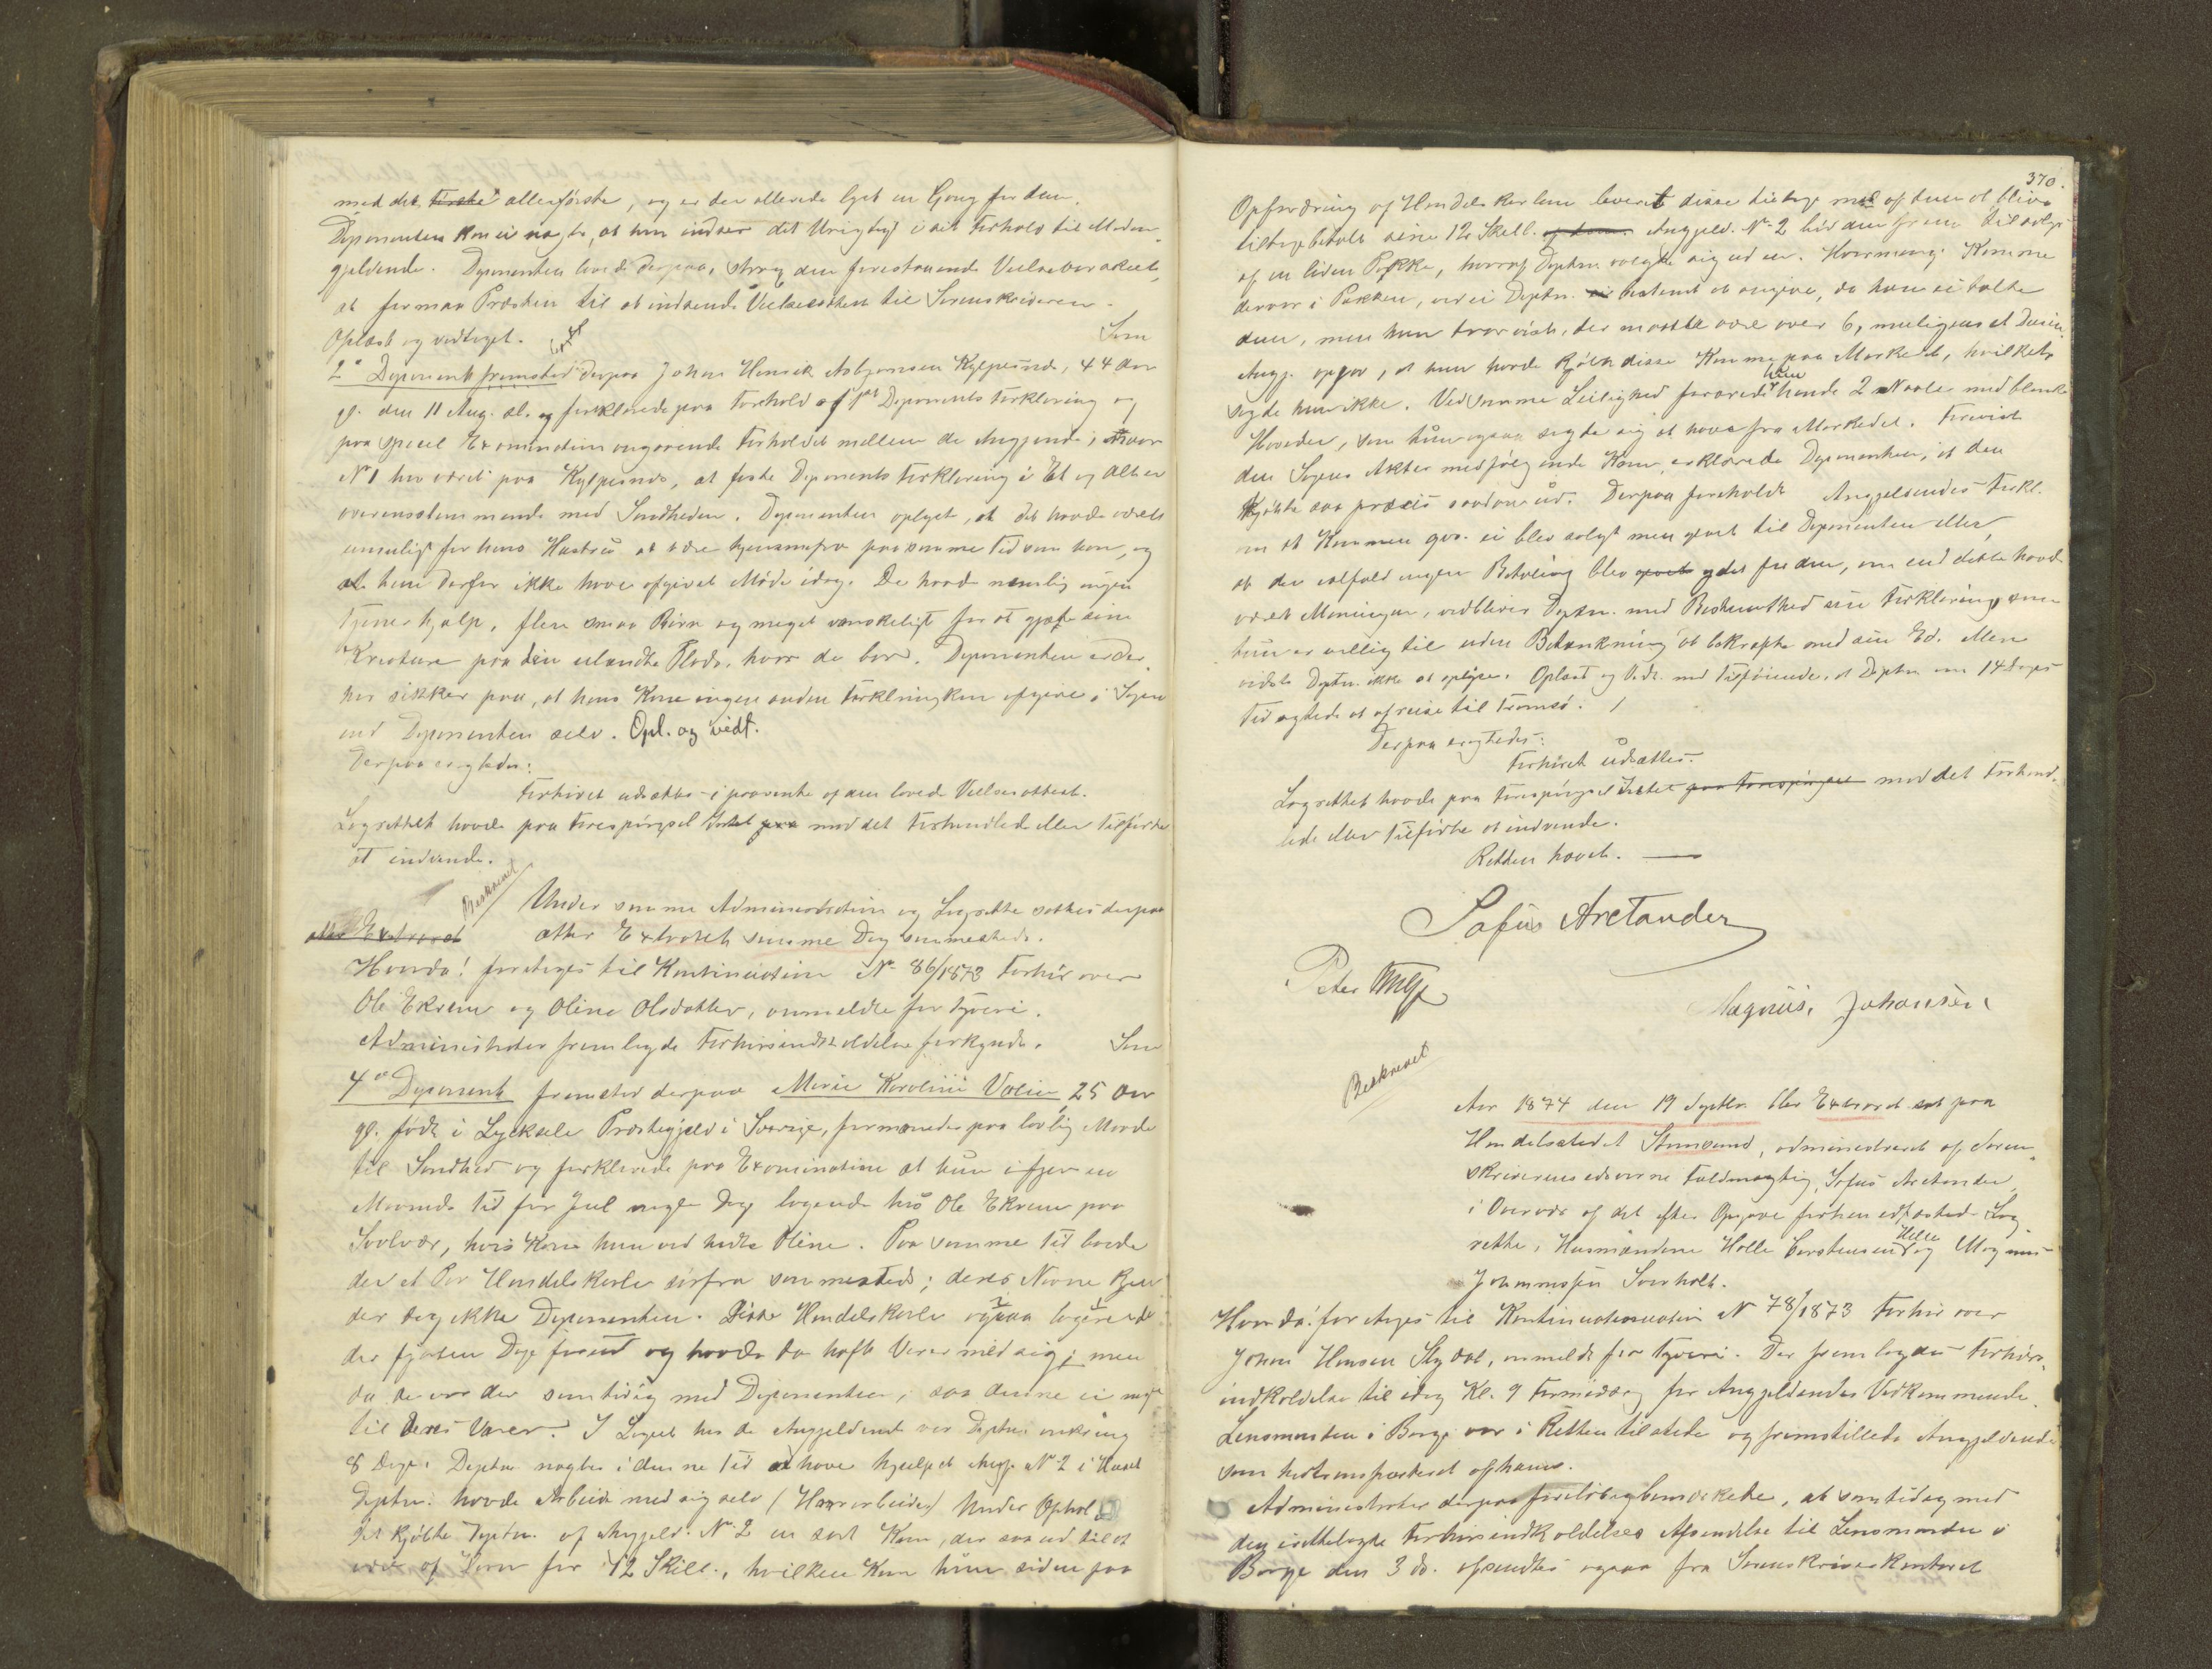 med det første allerførste, og er der allerede lyst en Gang for dem.
Deponenten kan ei nægte, at hun indser det Urigtige i sit Forhold til Medan-
gjeldende. Deponenten lovede derpaa, strax den forestaaende Vielse var skeet,
at formaa Præsten til at indsende Vielsesattest til Sorenskriveren.
Oplæst og vedtaget. Som
2de Deponent fremstod derpaa Johan Henrik Asbjørnsen Kylpesnes, 44 Aar
gl. den 11 Aug. d. og forklarede paa Forehold af 1ste Deponents Forklaring og
paa speciel Examination angaaende Forholdet mellem de Angjældende, medens
No 1 har været paa Kylpesnes, at første Deponents Forklaring i Et og Alt er
overensstemmende med Sandheden. Deponenten oplyste, at det havde været
umuligt for hans Hustru at være hjemmefra paa samme Tid som han, og
at hun derfor ikke have opgivet Møde idag. De havde nemlig ingen
Tjenerhjælp, flere smaa Børn og meget vanskeligt for at gjæte sine
Kreature paa den ulændte Plads, hvor de bor. Deponenten er der-
hos sikker paa, at hans Kone ingen anden Forklaring kan afgive i Sagen
end Deponenten selv. Opl. og vedt.
Derpaa eragtedes:
Forhøret udsættes i paavente af den lovede Vielsesattest.
Lagrettet havde paa Forespørgsel Intet paa mod det Forhandlede eller Tilførte
at indvende.
Beskrevet
Under samme Administration og Lagrette sattes derpaa
atter Extraret atter Extraret samme Dag sammesteds.
Hvorda! foretoges til Kontinuation No 86/1873 Forhør over
Ole Ekrem og Oline Olsdatter, anmeldte for Tyveri.
Administrator fremlagde Forhørsindkaldelse forkyndt. Som
4de Deponent fremstod derpaa Marie Karoline Valin, 25 Aar
gl. født i Lycksele Præstegjeld i Sverige, formanedes paa lovlig Maade
til Sandhed og forklarede paa Examination at hun ifjor en
Maaneds Tid før Jul nogle Dage logerede hos Ole Ekrem paa
Svolvær, hvis Kone hun ved hedte Oline. Paa samme Tid boede
der et Par Handelskarle sørfra sammesteds; deres Navne kjen-
der dog ikke Deponenten. Disse Handelskarle ogsaa logerede
der fjorten Dage forud og havde da havt Varer med sig; men
da de var der samtidig med Deponenten, saa denne ei noget
til deres Varer. I Logiet hos de Angjeldende var Deptn. omkring
8 Dage. Deptn. nægter i denne Tid at have hjulpet Angj. No 2 i Huset
Deptn. havde Arbeide med sig selv (Haararbeide) Under Ophol-
det kjøbte Deptn. af Angjeld. No 2 en sort Kam, der saa ud til at
være af Horn for 12 Skill., hvilken Kam hun siden paa
370.
Opfordring af Handelskarlene leverede disse tilbage mod af dem at blive
tilbagebetalt sine 12 Skill. og den. Angjeld. No 2 bød den frem til salgs
af en liden Pakke, hvoraf Deptn. valgte sig ud en. Hvormange Kamme
der var i Pakken, ved ei Deptn. ei bestemt at angive, da hun ei talte
dem, men hun tror vist, der maatte være over 6, muligens et Dusin.
Angj. opgav, at hun havde kjøbt disse Kamme paa Markedet, hvilket
sagde hun ikke. Ved samme Leilighed forærede hun hende 2 Naale med blanke
Hoveder, som hun ogsaa sagde sig at have fra Markedet. Forevist
den Sagens Akter medfølgende Kam, erklærede Deponenten, at den
kjøbte saa præcis saadan ud. Derpaa foreholdt Angjeldendes Forkl.
om at Kammen qvs. ei blev solgt men givet til Deponenten eller
at der ialfald ingen Betaling blev givet ydet for den, om end dette havde
været Meningen, vedbliver Deptn. med Bestemthed sin Forklaring som
hun er villig til uden Betænkning at bekræfte med sin Ed. Mere
vidste Deptn. ikke at oplyse. Oplæst og Vedt. med Tilføiende, at Deptn. om 14 Dages
Tid agtede at afreise til Tromsø. /
Derpaa eragtedes:
Forhøret udsættes.
Lagrettet havde paa Forespørgsel Intet paa Forespørgsel mod det Forhand-
lede eller Tilførte at indvende.
Retten hævet. —
Sofus Arctander
Peter Magnus. Johansen
Beskrevet
Aar 1874 den 19 Septbr. blev Extraret sat paa
Handelsstedet Stamsund, administreret af Soren-
skriverens edsvorne Fuldmægtig, Sofus Arctander,
i Overvær af det efter Opgave forhen edfæstede Lag-
rette, Husmændene Halle Carstensen Helle og Magnus
Johannessen Svarholt.
Hvorda! foretoges til Kontinuation No 78/1873 Forhør over
Johan Hansen Stydal, anmeldt for Tyveri. Der fremlagdes Forhørs-
indkaldelse til idag Kl. 9 Formiddag for Angjeldendes Vedkommende.
Lensmanden i Borge var i Retten tilstede og fremstillede Angjeldende
som hidtransporteret af ham.
Administrator derpaa foreløbig bemærkede, at samtidig med
den irettelagte Forhørsindkaldelses Afsendelse til Lensmanden i
Borge den 3 ds. afsendtes ogsaa fra Sorenskriverkontoret